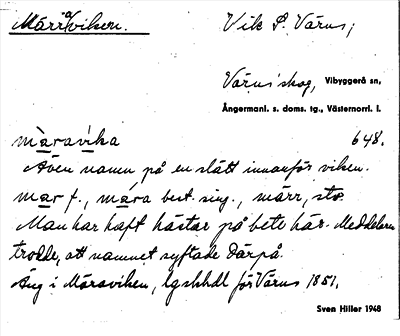 Märraviken. Vik S. Värns;
Värns skog, Vibyggerå sn,
Ångermanl. s. doms. tg., Västernorrl. l.
màravika 648.
Även namn på en slått innanför viken.
mar f., mára best. sing., märr, sto.
Man har haft hästar på bete här. Meddelaren
trodde, att namnet syftade därpå.
Äng i Märaviken, lgskhdl för Värns 1851.
Sven Hiller 1948